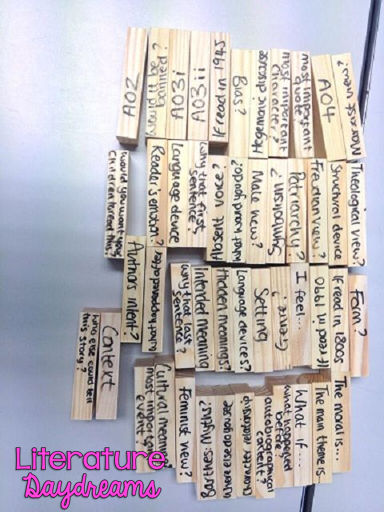 A02
would it be
banned?
A03i
A03ii
If read in 1945
Bias?
Hegemonic discourse
most important
character?
most important
quote?
A04
Marxist view?
would you want your
children to read this?
Reader's emotion?
Language device
why that first
sentence?
Absent voice?
what happens after?
Male view?
Symbolism?
Patriarchy?
Freudian view?
Structural device
Theological view?
Authors intent?
what happened before?
why that last
sentence?
Intended meaning
Hidden meanings?
Language devices?
Setting
Genre?
I feel...
If read in 1990
If read in 1800s
Form?
who else could tell
this story?
Context
most important
event?
Cultural meaning?
Feminist view?
Barthes: Myths?
autobiographical
content?
what happened
before?
What if...
The main theme is...
The moral is...
Literature
Daydreams